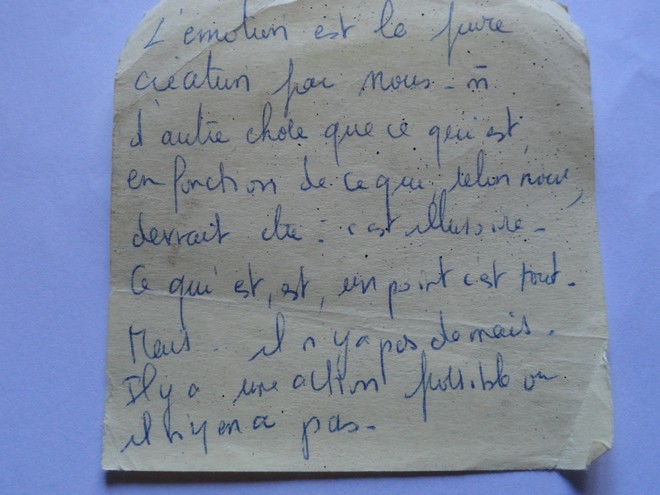 L'émotion est la pure
création par nous-m̄
d'autre chose que ce qui est,
en fonction de ce qui, selon nous,
devrait être : c'est illusoire-
Ce qui est, est, un point c'est tout.
Mais.. il n'y a pas de mais.
Il y a une action possible ou
il n'y en a pas-